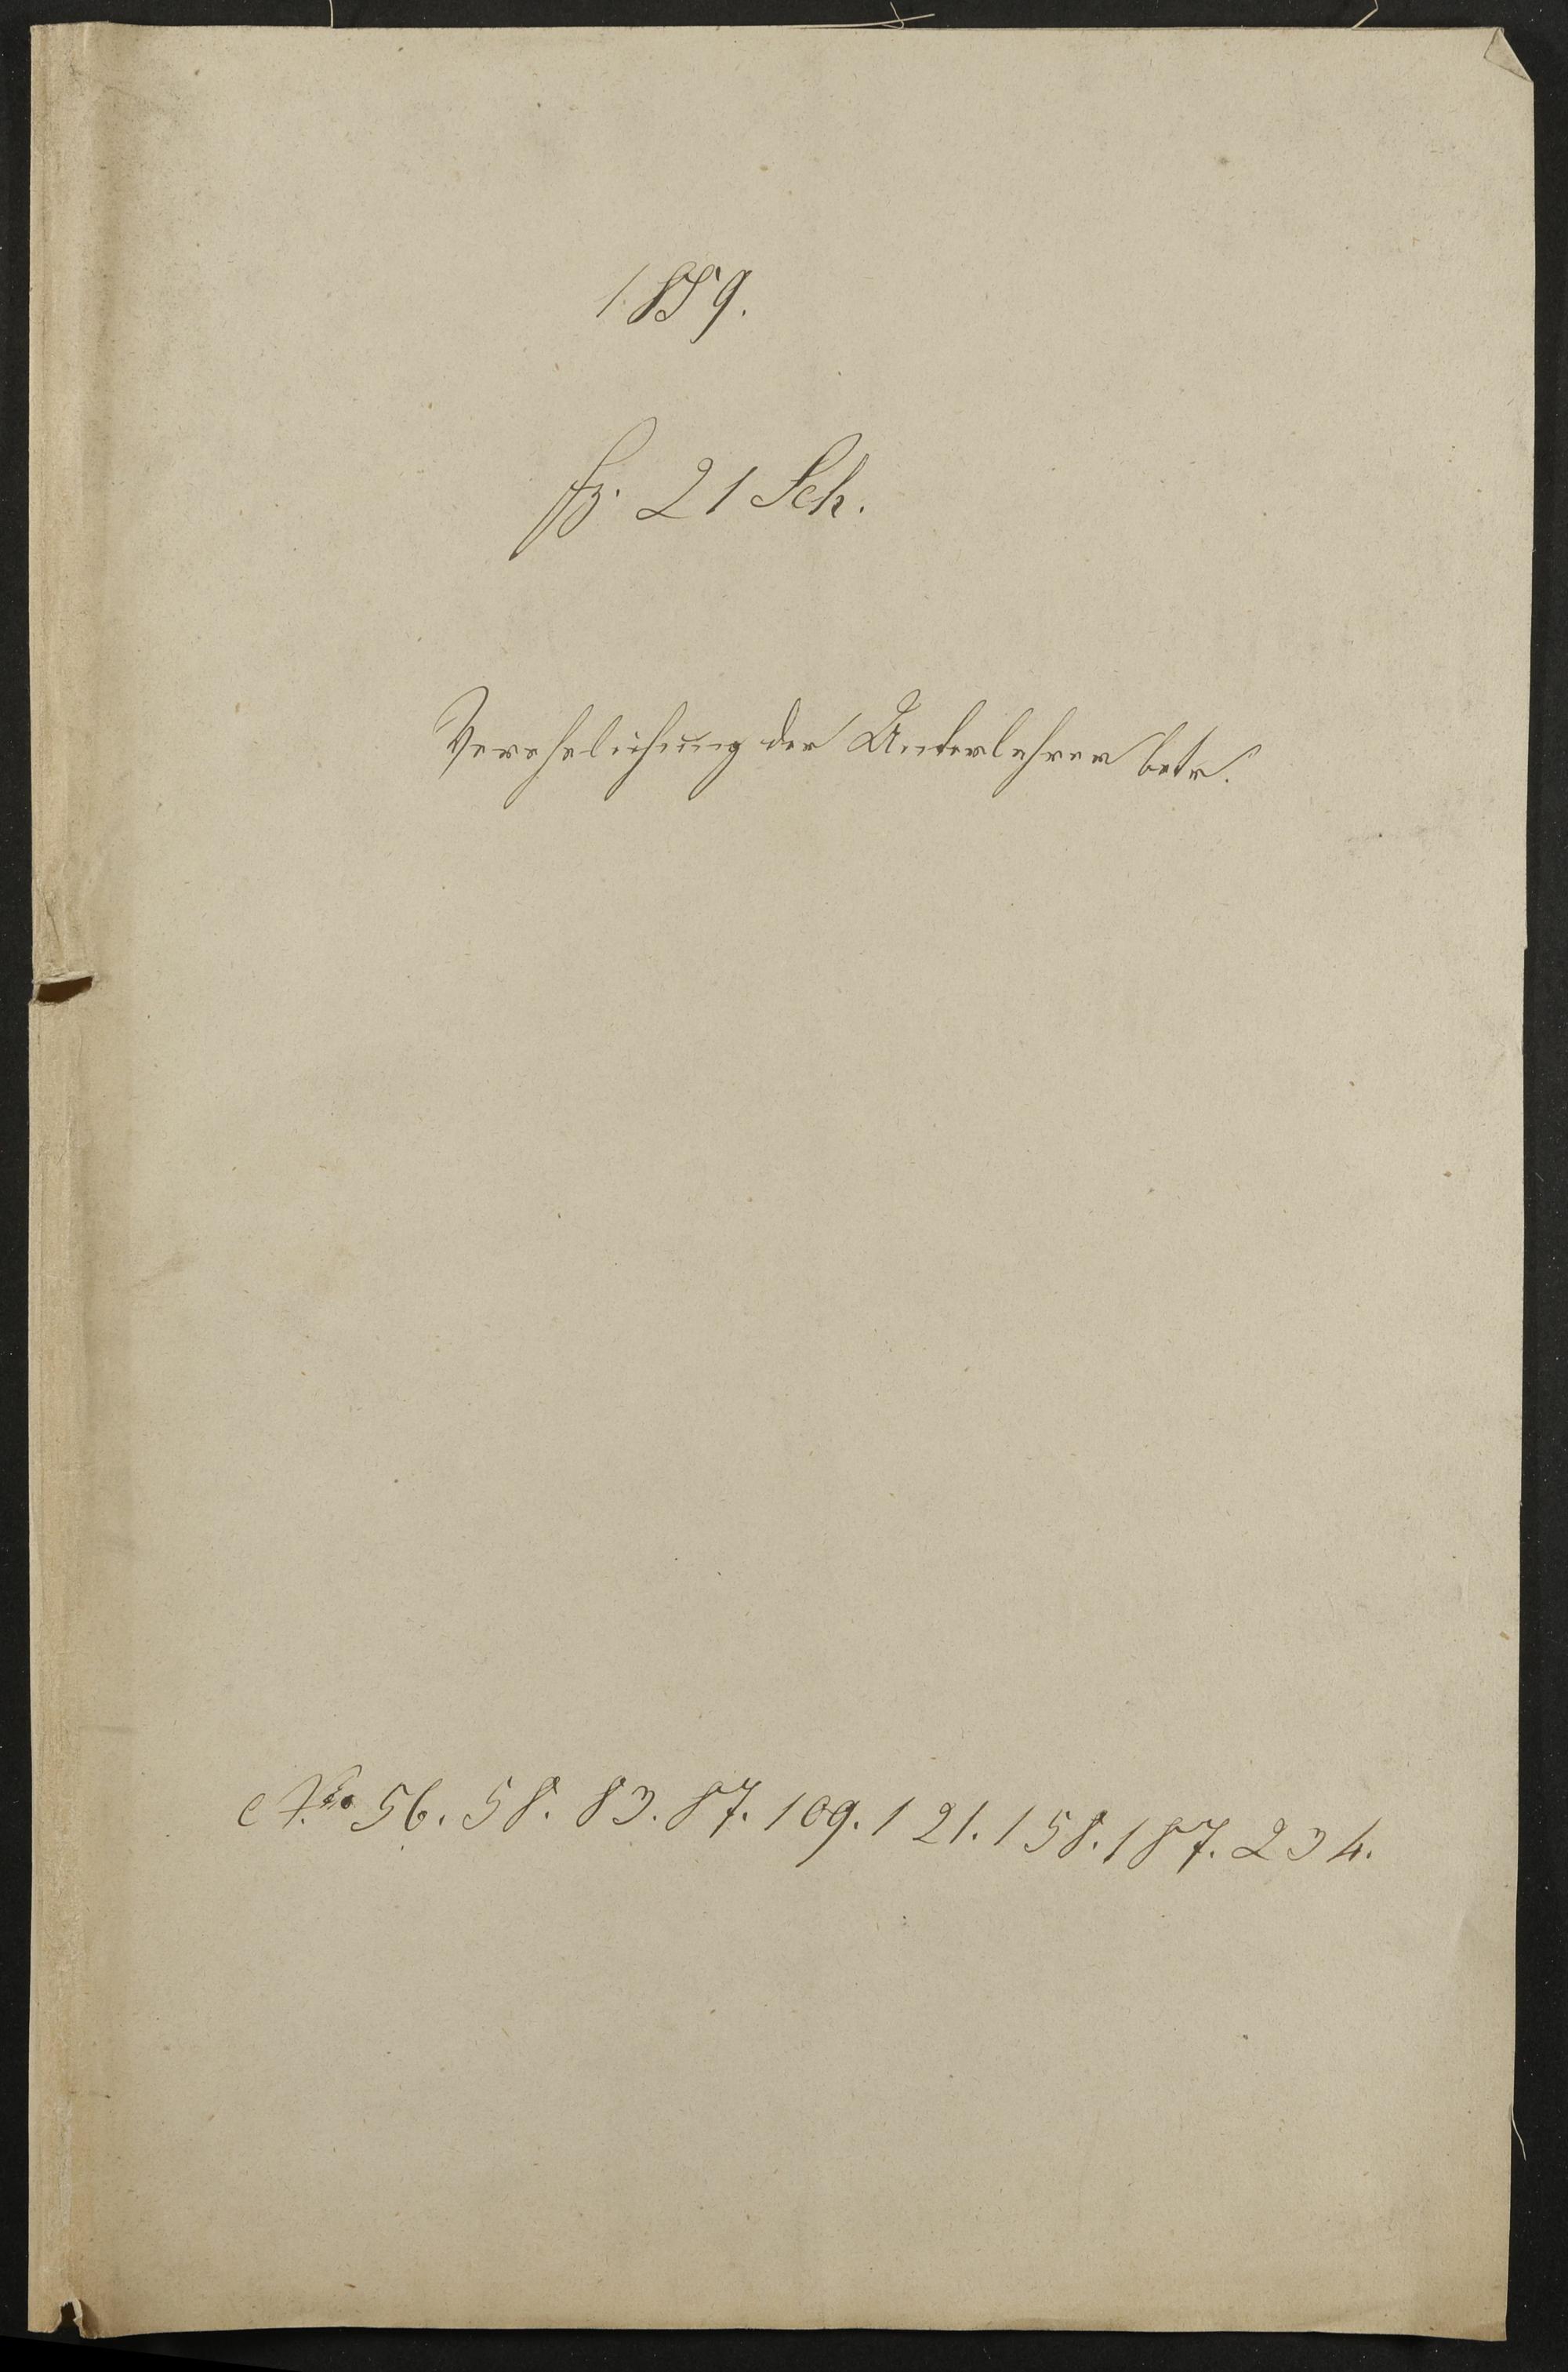 1859.
fz. 21 Sch.
Verehelichung der Unterlehrer betr.
No 56. 58. 83. 87. 109. 121. 158. 187. 234.